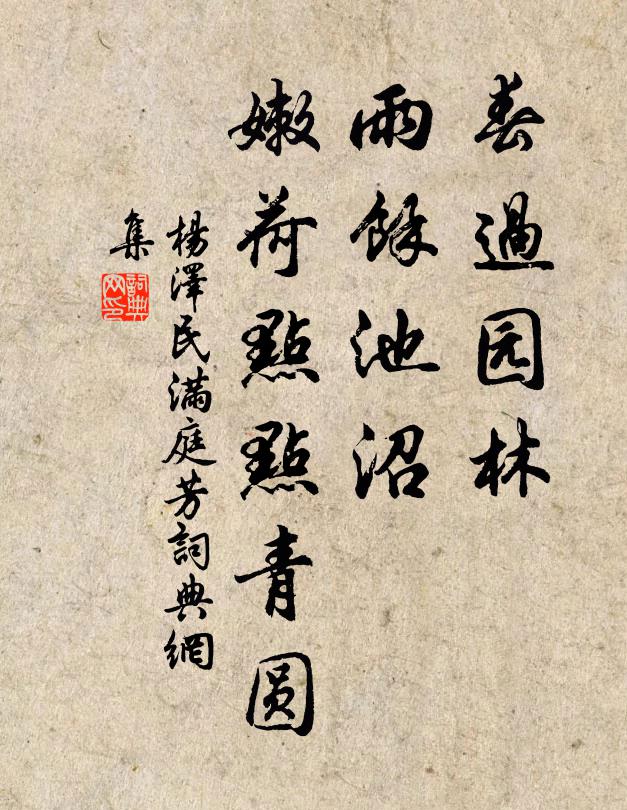 春過园林
雨餘池沼
嫩荷點點青圆
楊澤民滿庭芳詞典網
集
詞典
网印